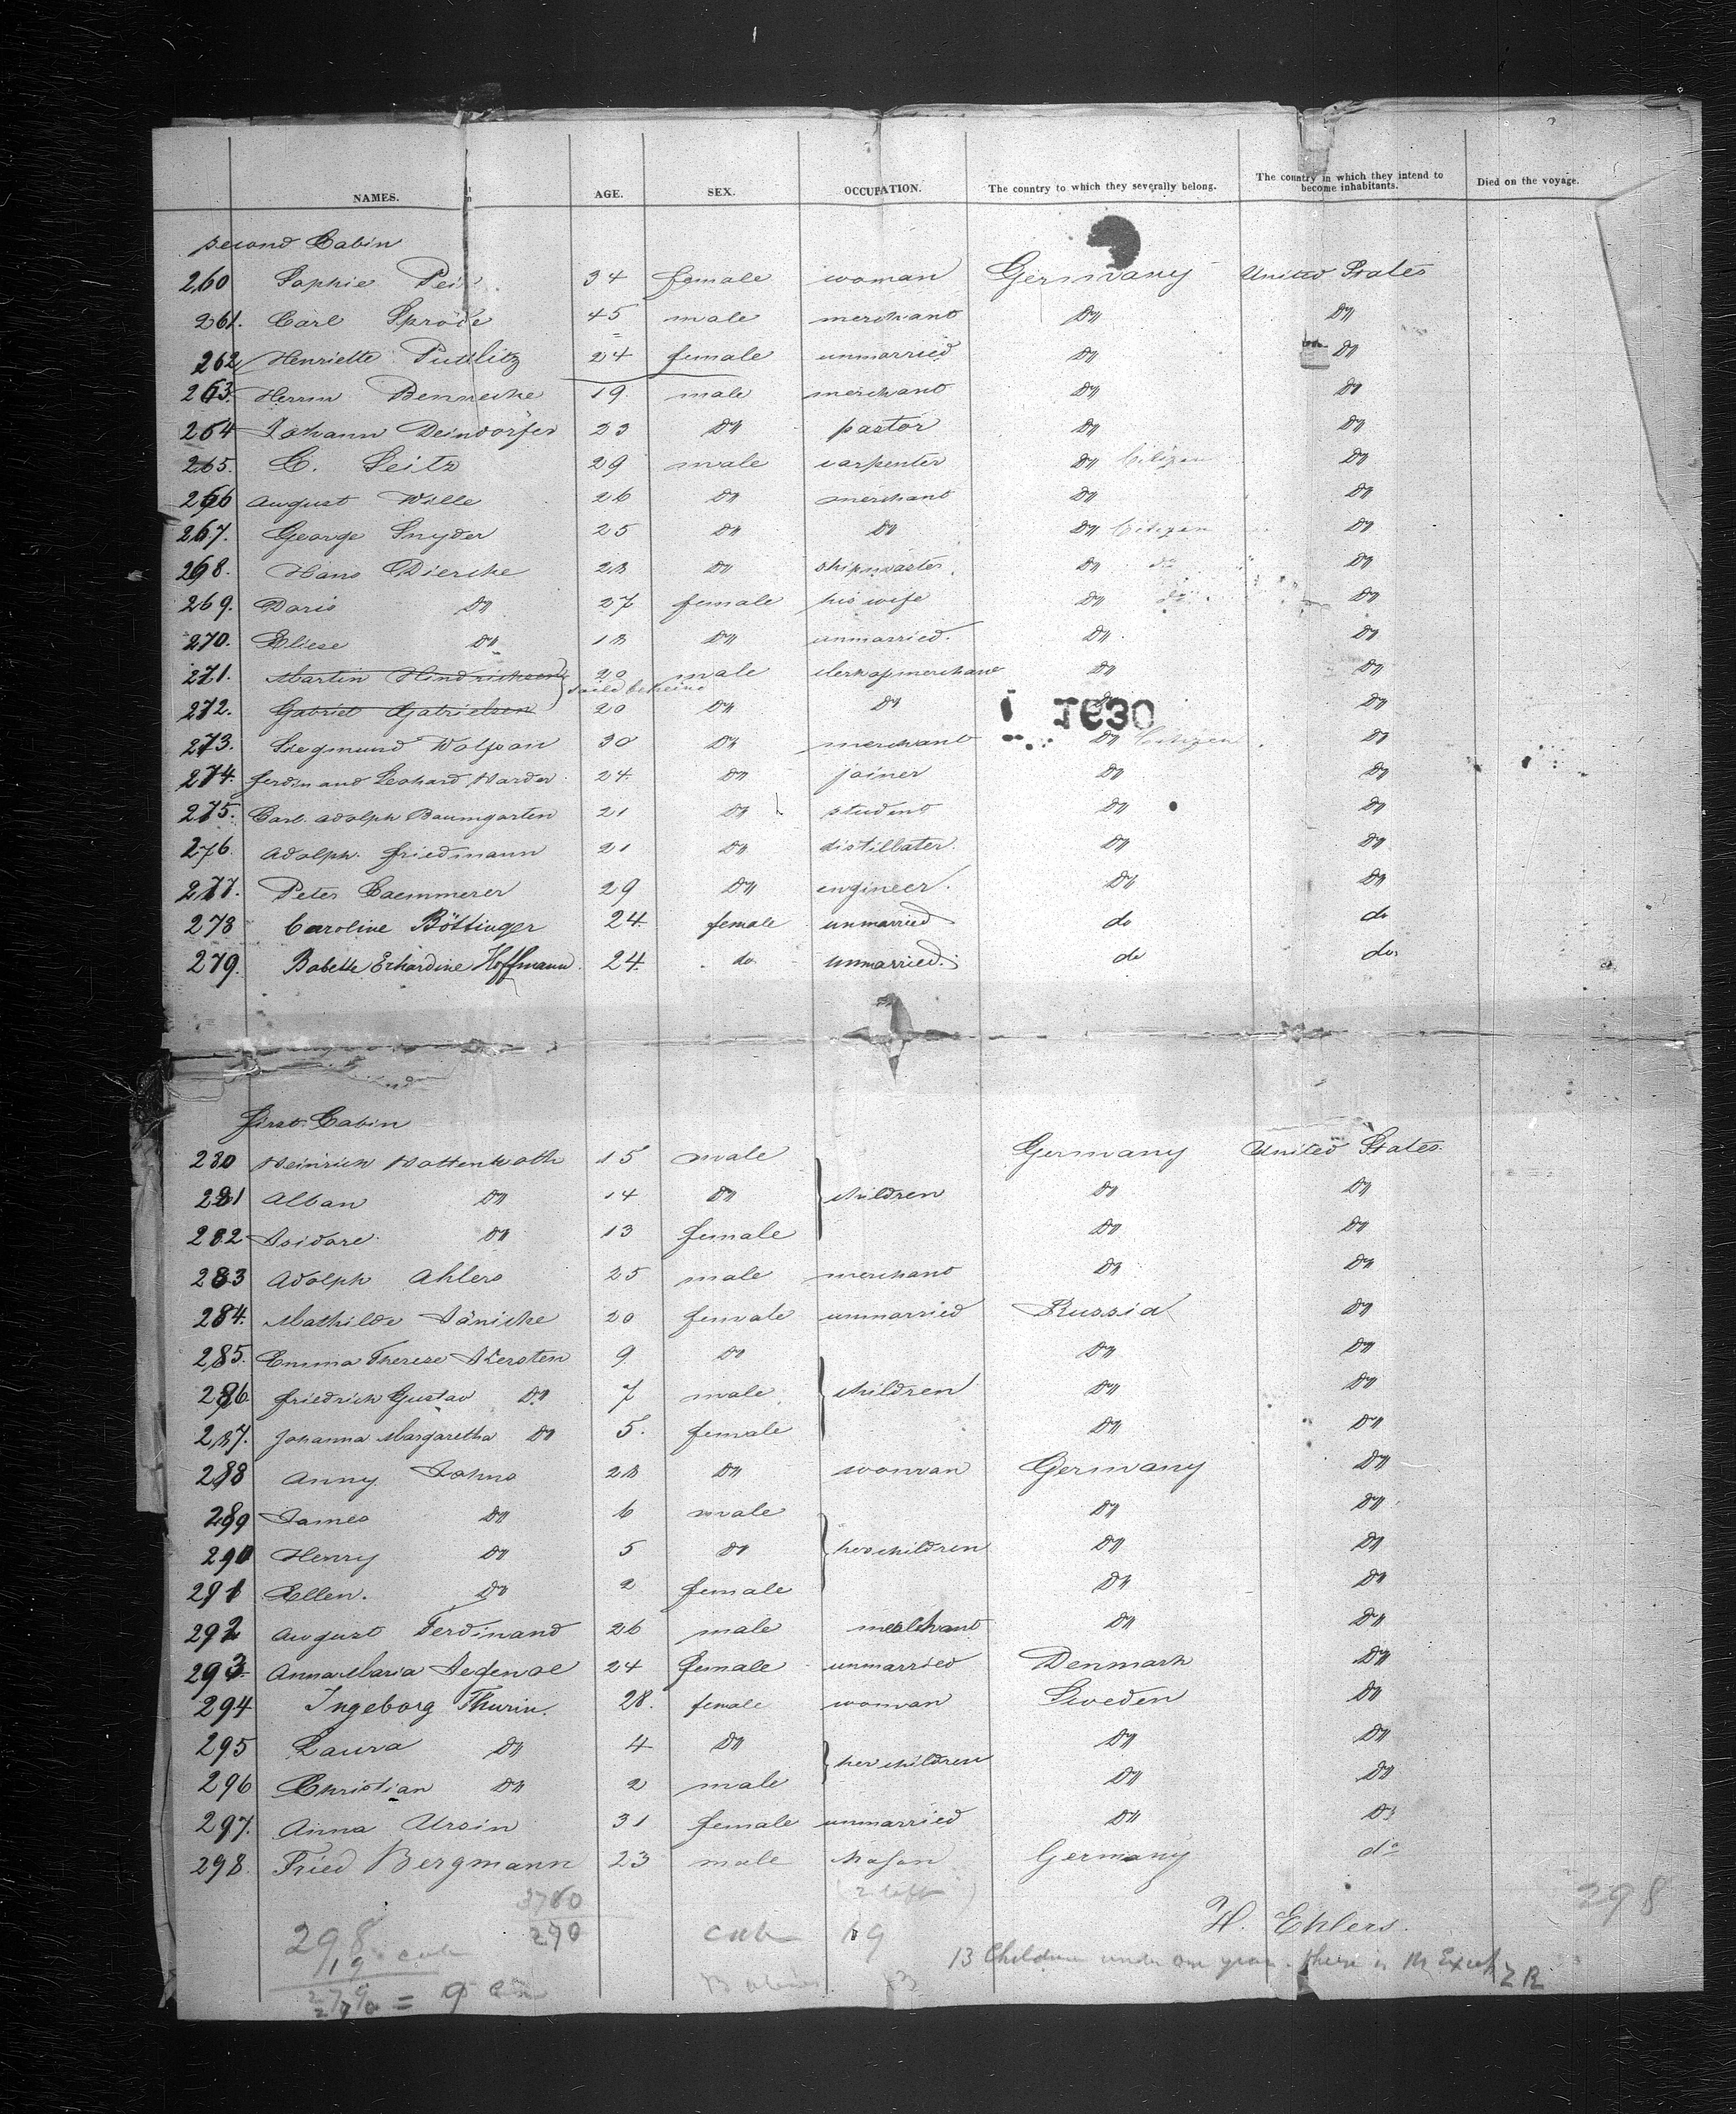 NAMES. AGE. SEX. OCCUPATION. The country to which they severally belong. The country in which they intend to become inhabitants. Died on the voyage.
second Cabin
260 Sophie 34 female woman Germany United States
261. Carl Spröde 45 male merchant Do Do
262 Henriette Puttlitz 24 female unmarried Do Do
263. Herrm Bennecke 19 male merchant Do Do
264 Johann Deindörfer 23 Do pastor Do Do
265. C. Seitz 29 male carpenter Do Citizen Do
266 August Wille 26 Do merchant Do Do
267. George Snyder 25 Do Do Do Citizen Do
268. Hans Diercke 28 Do shipmaster Do do Do
269. Doris Do 27 female his wife Do do Do
270. Eliese Do 18 Do unmarried. Do Do
271. Martin Hindrichsen 20 male clerk of merchant Do Do
272. Gabriel Gabrielsen 20 Do Do Do
273. Siegmund Wolfsan 30 Do merchant Do Citizen Do
274. Ferdinand Leohard Harder 24. Do joiner Do Do
275. Carl Adolph Baumgarten 21 Do student Do Do
276. Adolph Friedmann 21 Do distillater. Do Do
277. Peter Caemmerer 29 Do engineer. Do Do
278 Caroline Böttinger 24. female unmarried do do
279. Babette Erhardine Hoffmann. 24. do unmarried. do do.
First Cabin
280 Heinrich Hottenroth 15 male Germany United States.
281 Alban Do 14 Do children Do Do
282 Isidore Do 13 female Do Do
283 Adolph Ahlers 25 male merchant Do Do
284. Mathilde Jänicke 20 female unmarried Russia Do
285. Emma Therese Kersten 9 Do Do Do
286. Friedrich Gustav Do 7 male children Do Do
287. Johanna Margaretha Do 5. female Do Do
288 Anny Johns 28 Do woman Germany Do
289 James Do 6 male Do Do
290 Henry Do 5 Do her children Do Do
291 Ellen. Do 2 female Do Do
292 August Ferdinand 26 male merchant Do Do
293. Anna Maria 24 female unmarried Denmark Do
294 Ingeborg Thurin. 28. female woman Sweden Do
295 Laura Do 4 Do her children Do Do
296 Christian Do 2 male Do Do
297. Anna Ursin 31 female unmarried Do Do
298. Fried Bergmann 23 male Mason Germany do
3760
290
298
19
H. Ehlers.
298
69
13 Children under one year.